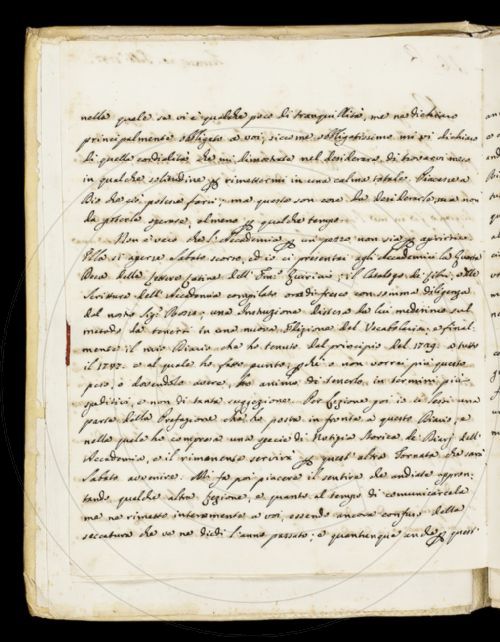 nella quale se vi è qualche poco di tranquillità, me ne dichiaro
principalmente obbligato a voi, siccome obbligatissimo mi vi dichiaro
di quella cordialità che mi dimostrate nel desiderare di trovarvi meco
in qualche solitudine rimettermi in una calma totale. Piacesse a
Dio che ciò potesse farsi; ma queste son cose da desiderarle, ma non
da poterle sperare, almeno qualche tempo.
Non è vero che l'Accademia un pezzo non sia aprirsi
Ella si aperse sabato scorso, ed io ci presentai agli Accademici la Quarta
Deca delle Lettere Latine dell' ; il Catalogo de' libri, e delle
Scritture dell'Accademia compilato ora di fresco con somma diligenza
dal nostro Sig. ; una Instruzione distesa da lui medesimo sul
metodo da tenersi in una nuova Edizione del Vocabolario; e final-
mente il mio Diario che ho tenuto dal principio del a tutto
il e al quale ho fatto punto, o non vorrei più questo
peso, o dovendolo avere, ho animo di tenerlo in termini più
speditivi, e non di tanta suggezione. Per lezione poi io ci lessi una
parte della Prefazione che ho posta in fronte a questo Diario, e
nella quale ho compresa una specie di Notizia Storica de' Diarj dell'
Accademia, e il rimanente servirà quest'altra Tornata che sarà
sabato avvenire. Mi fa poi piacere il sentire che andiate appron-
tando qualche altra Lezione, e quanto al tempo di comunicarcela
me ne rimetto interamente a voi, essendo ancora confuso della
seccatura che ve ne diedi l'anno passato; e quantunque anche quest'